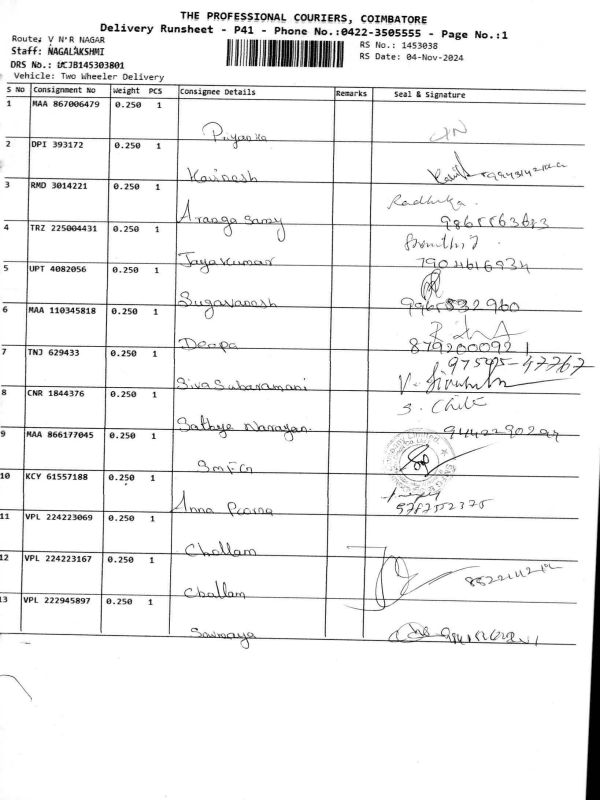 THE PROFESSIONAL COURIERS, COIMBATORE
Delivery Runsheet - P41 - Phone No.:0422-3505555 - Page No.:1
Route: V N R NAGAR
RS No.: 1453038
Staff: NAGALAKSHMI
RS Date: 04-Nov-2024
DRS No.: UCJB145303801
Vehicle: Two Wheeler Delivery
S No Consignment No Weight PCS Consignee Details Remarks Seal & Signature
1 MAA 867006479 0.250 1 Priyanka
2 DPI 393172 0.250 1 Kavinash
3 RMD 3014221 0.250 1 Aranga Samy Radhika
4 TRZ 225004431 0.250 1 Jayakumar 7904616934
5 UPT 4082056 0.250 1 Sugavanesh 9965532960
6 MAA 110345818 0.250 1 Deepa 8792000921
7 TNJ 629433 0.250 1 Siva Subaramani
8 CNR 1844376 0.250 1 Sathya Narayan
9 MAA 866177045 0.250 1
10 KCY 61557188 0.250 1 Anna Poorna
11 VPL 224223069 0.250 1 Chollam
12 VPL 224223167 0.250 1 Chollam
13 VPL 222945897 0.250 1 Sowmaya